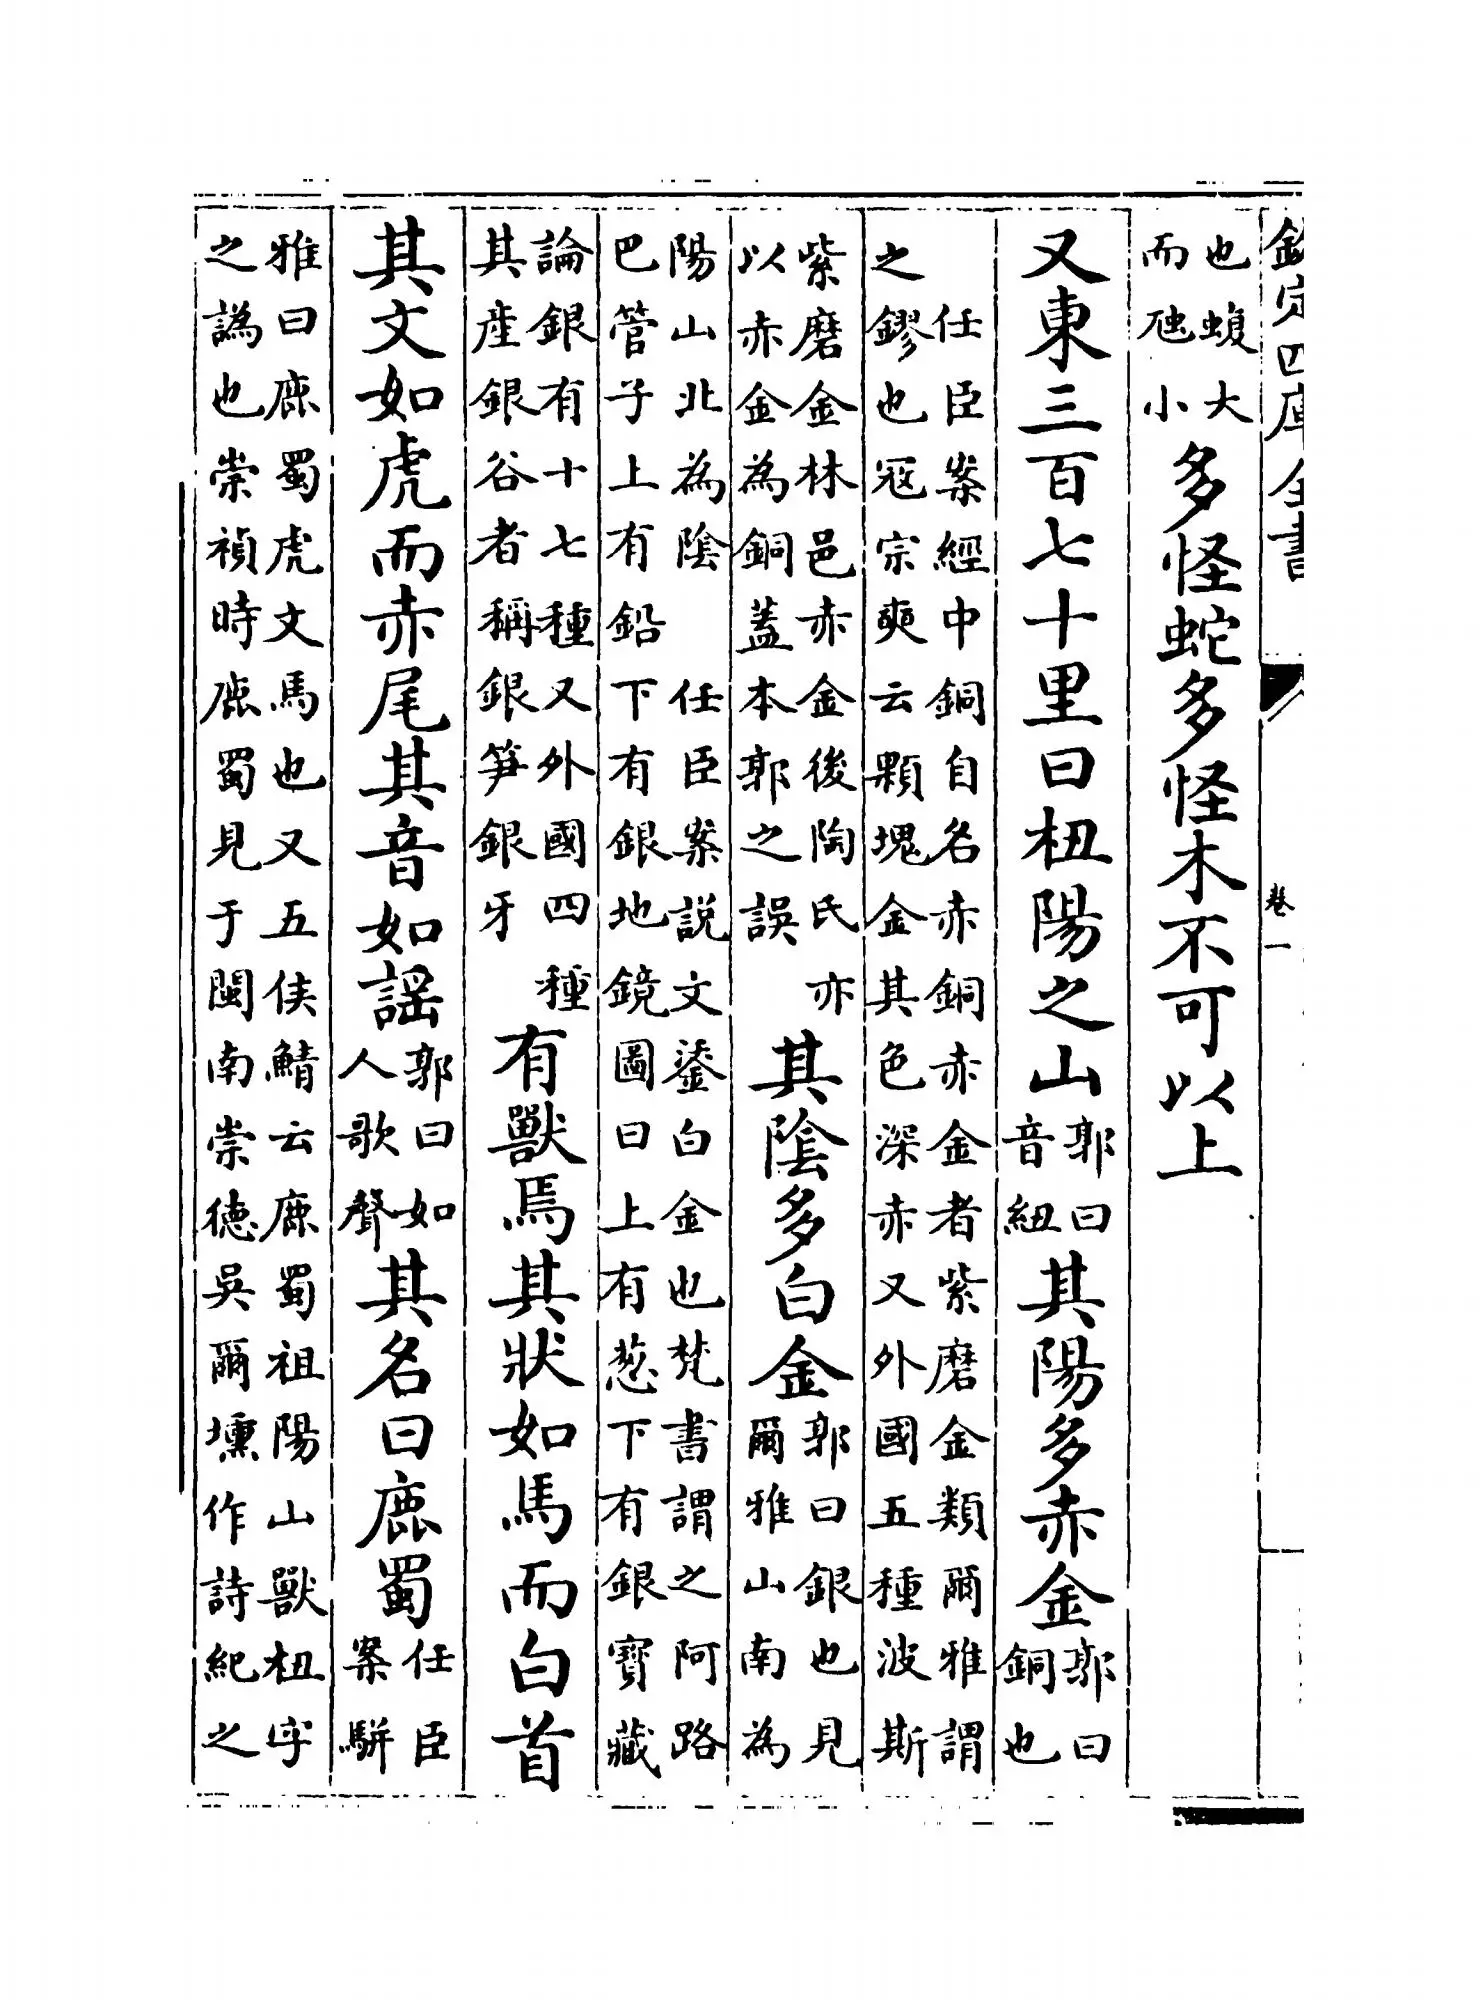 欽定四庫全書 卷一
也蝮大而虺小多怪蛇多怪木不可以上
又東三百七十里曰杻陽之山郭曰音紐其陽多赤金郭曰銅也
任臣案經中銅自名赤銅赤金者紫磨金類爾雅謂
之鏐也冦宗奭云顆塊金其色深赤又外國五種波斯
紫磨金林邑赤金後陶氏亦以赤金為銅蓋本郭之誤其陰多白金郭曰銀也見爾雅山南為
陽山北為陰 任臣案説文鋈白金也梵書謂之阿路
巴管子上有鉛下有銀地鏡圖曰上有葱下有銀寶藏
論銀有十七種又外國四種其産銀谷者稱銀銀笋銀牙有獸焉其狀如馬而白首
其文如虎而赤尾其音如謡郭曰如人歌聲其名曰鹿蜀任臣案駢
雅曰鹿蜀虎文馬也又五侯鯖云鹿蜀祖陽山獸杻字
之譌也崇禎時鹿蜀見于閩南崇德吳爾壎作詩紀之